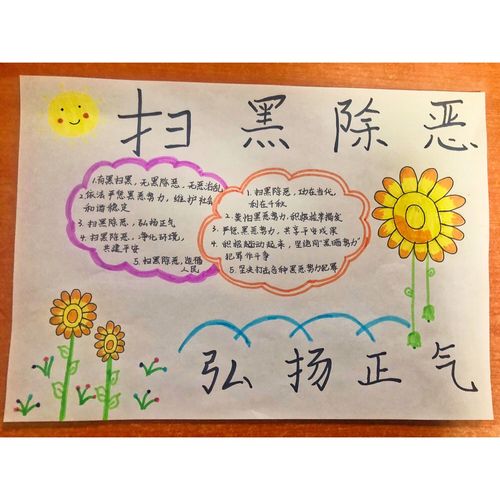 扫黑除恶
1.有黑扫黑,无黑除恶,无恶治乱
2.依法严惩黑恶势力,维护社会
和谐稳定
3.扫黑除恶,弘扬正气
4.扫黑除恶,净化环境,
共建平安
5.扫黑除恶,造福
人民
1.扫黑除恶,功在当代,
利在千秋
2.黄扫黑恶势力,积极核举揭发
3.严惩黑恶势力,共享平安成家
4.积极起动起来,坚绝同"黑恶势力"
犯罪作斗争
5.坚决打击各种黑恶势力犯罪
弘扬正气